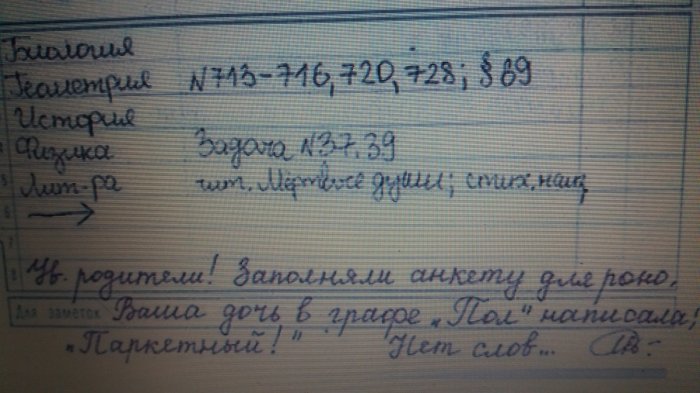 Биология
Геометрия N713-716, 720, 728; § 69
История
Физика Задача N37, 39
Лит-ра чит. Мёртвые души; стих. наиз
Ув. родители! Заполняли анкету для роно.
Для заметок Ваша дочь в графе „Пол" написала:
„Паркетный!" Нет слов...